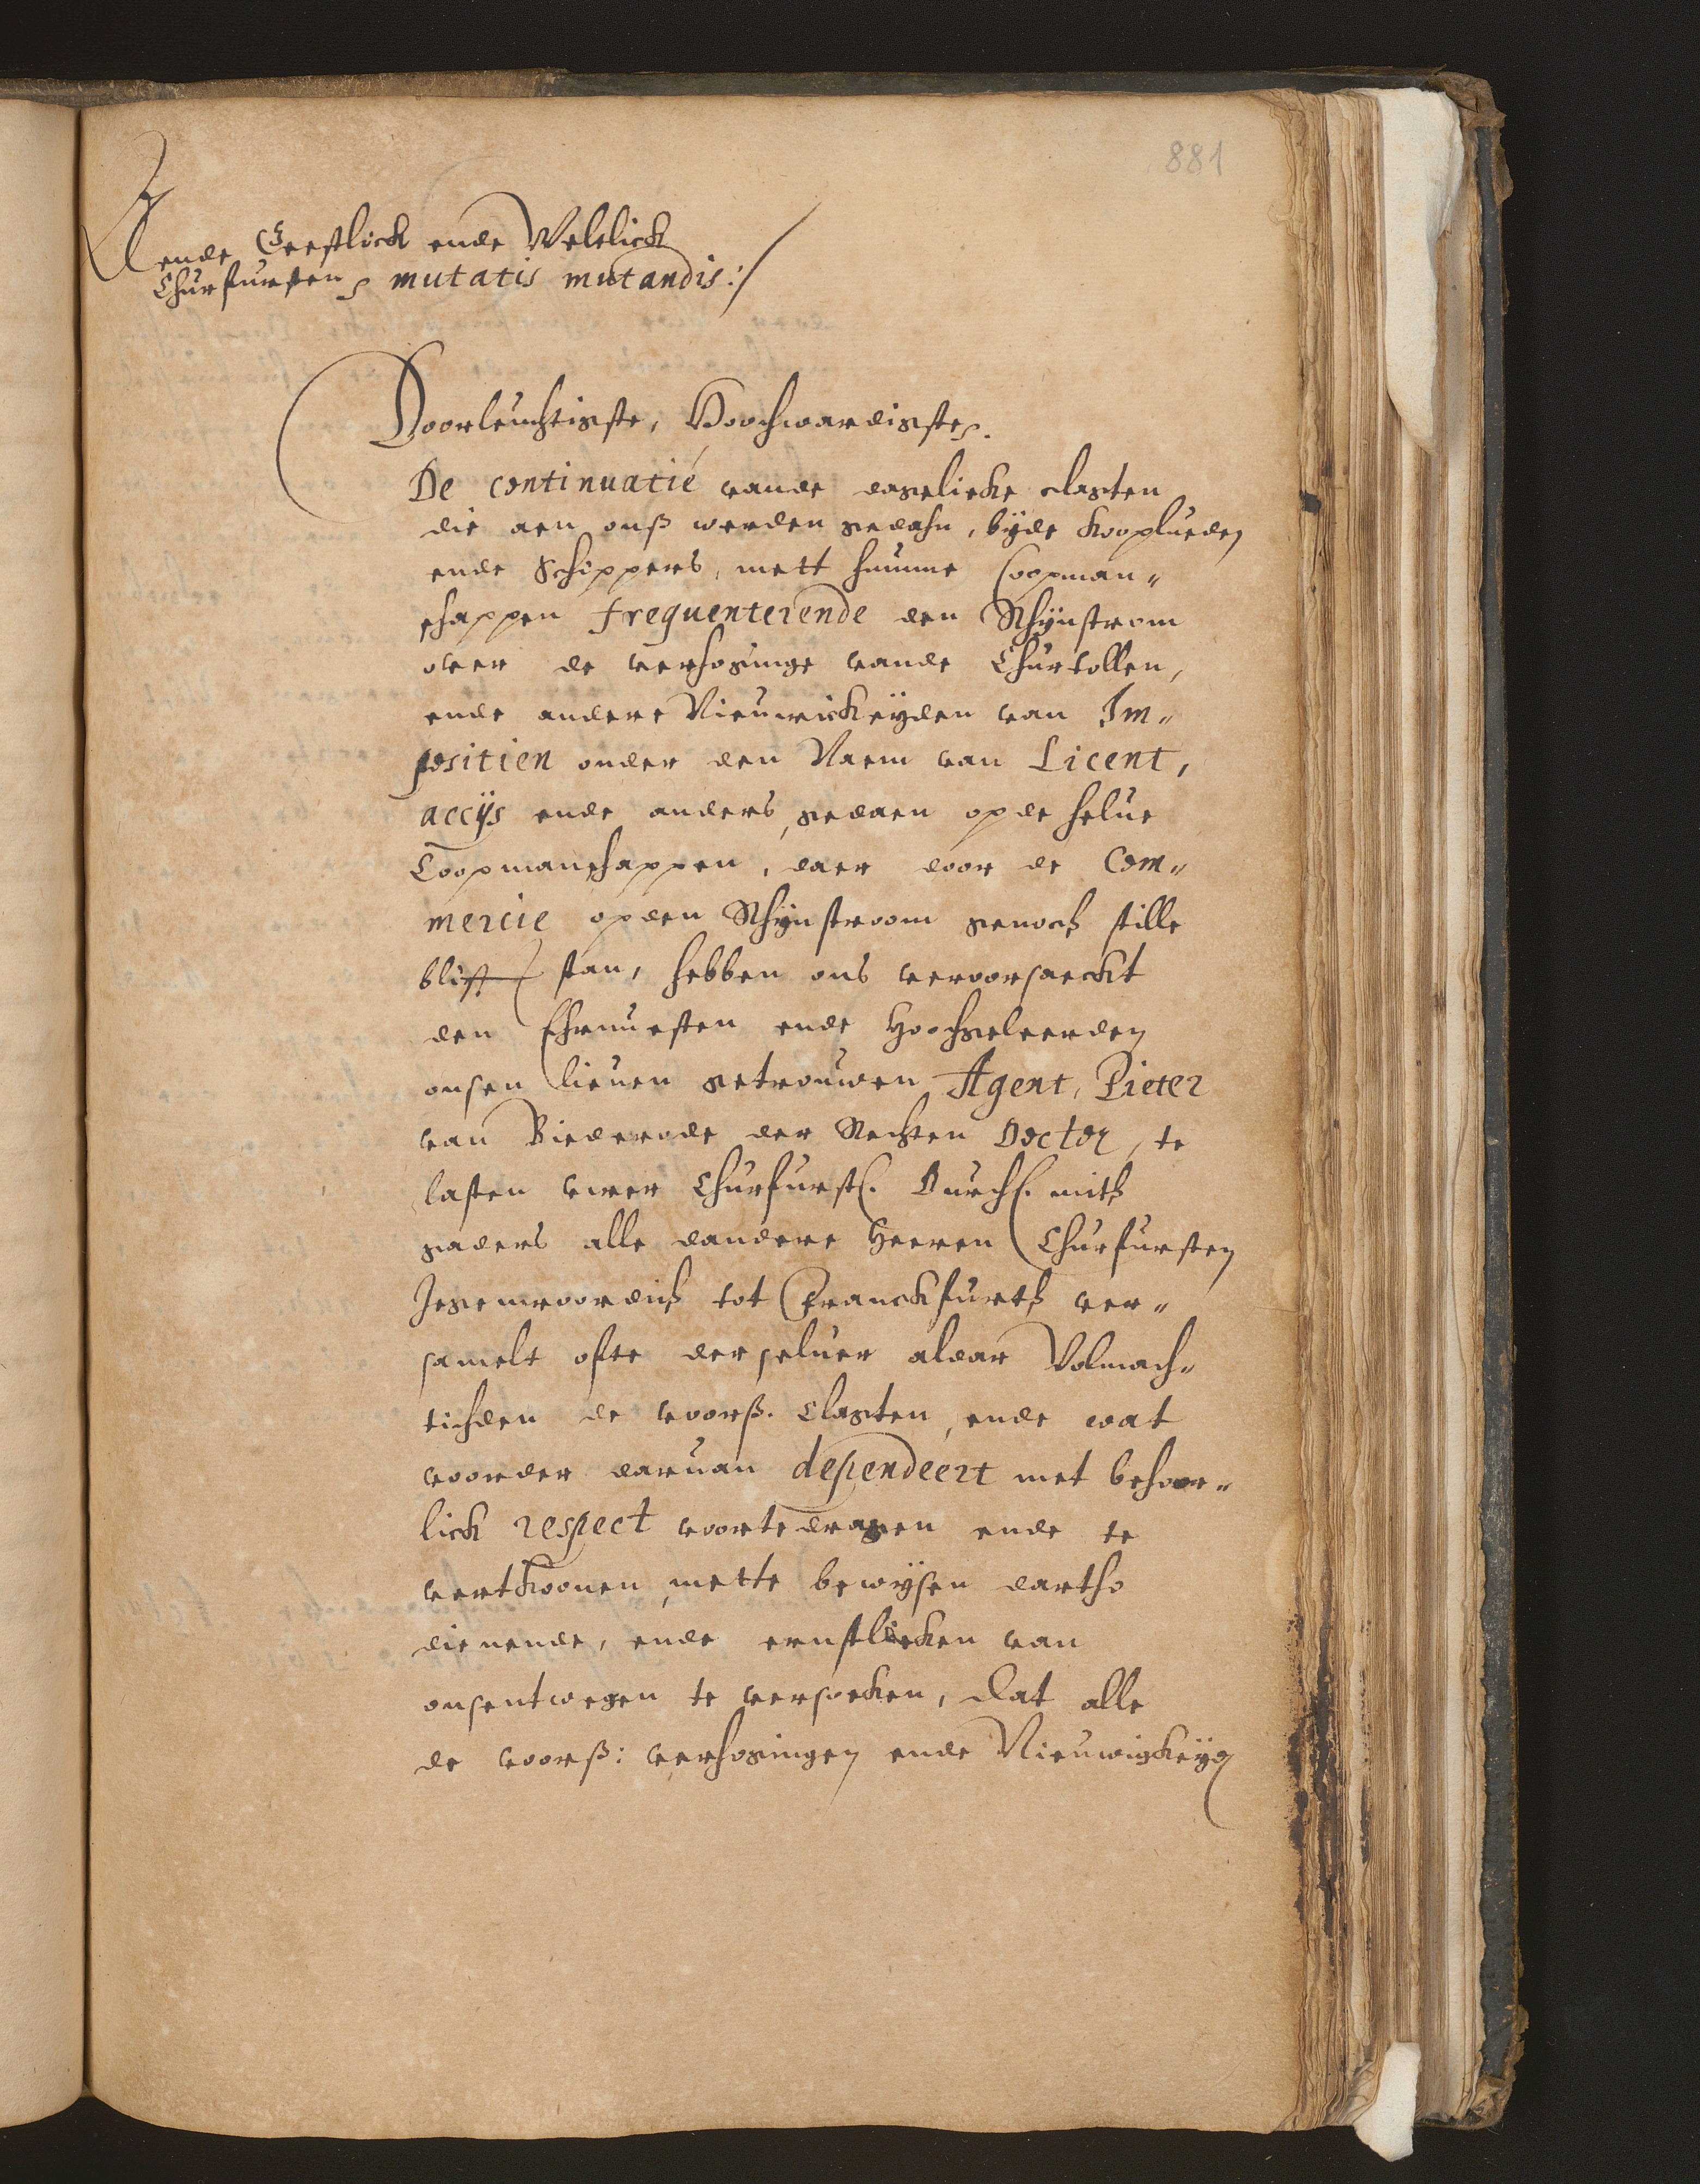 881
Aende Geestlick ende Weltlick
Churfursten mutatis mutandis:/
Doorleuchtigste, Hoochwardigste.
De continuatie vande dagelicke clagten
die aen onß werden gedahn, bÿde kooplueden
ende Schippers, mett hunne Coopman„
schappen frequenterende den Rhÿnstrom
over de verhoginge vande Churtollen,
ende andere Nieuwickeÿden van Im„
positien onder den Naem van Licent,
accÿs ende anders, gedaen op de selue
Coopmanschappen, daer door de Com„
mercie op den Rhÿnstroom genoch stille
blift stan, hebben ons veroorsaeckt
den Ehrnuesten ende Hoochgeleerden
onsen lieuen getrouwen Agent, Pieter
van Biederode der Rechten Doctor, te
lasten uwer Churfurstl. Durchl. mitß
gaders alle dandere Heeren Churfursten
Jegenwoordich tot Franckfurth ver„
samelt ofte derseluer aldar Volmach„
tichden de voorß. Clagten, ende wat
voorder daruan dependeert met behoor„
lick respect voortedragen ende te
verthoonen, mette bewÿsen dartho
dienende, ende ernstlicken van
onsentwegen te versoecken, dat alle
de voorß: verhogingen ende Nieuwigkeÿd